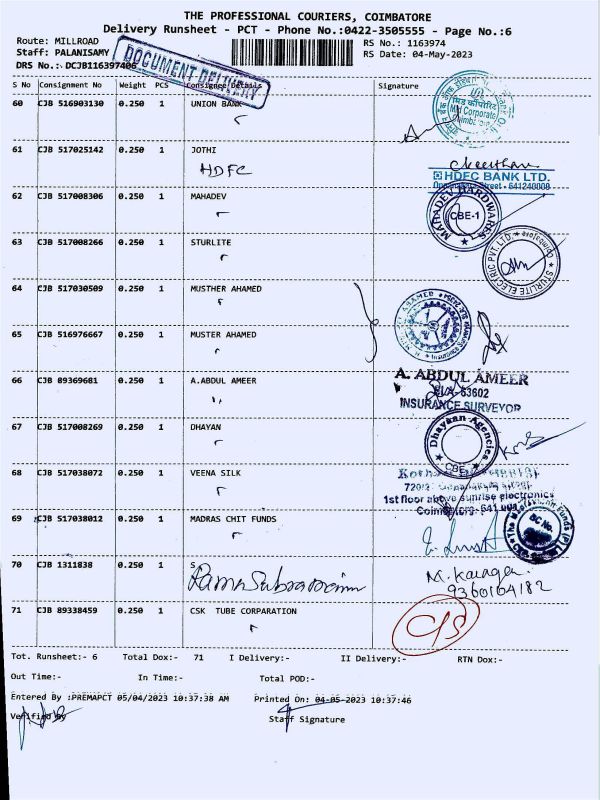 THE PROFESSIONAL COURIERS, COIMBATORE
Delivery Runsheet - PCT - Phone No.:0422-3505555 - Page No.:6
Route: MILLROAD RS No.: 1163974
Staff: PALANISAMY RS Date: 04-May-2023
DRS No.: DCJB116397406
DOCUMENT DELIVERY
S No Consignment No Weight PCS Consignee Details Signature
60 CJB 516903130 0.250 1 UNION BANK
Mid Corporate
61 CJB 517025142 0.250 1 JOTHI
HDFC
Keerthan
HDFC BANK LTD.
Street - 641240009
62 CJB 517008306 0.250 1 MAHADEV
MAHADEV HARDWARES
CBE-1
63 CJB 517008266 0.250 1 STURLITE
STURLITE ELECTRIC PVT. LTD. Coimbatore
64 CJB 517030509 0.250 1 MUSTHER AHAMED
65 CJB 516976667 0.250 1 MUSTER AHAMED
66 CJB 89369681 0.250 1 A.ABDUL AMEER
A. ABDUL AMEER
SLA-53602
INSURANCE SURVEYOR
67 CJB 517008269 0.250 1 DHAYAN
Dhayaan Agencies
CBE
68 CJB 517038072 0.250 1 VEENA SILK
1st floor above sunrise electronics
Coimbatore: 641 001
69 CJB 517038012 0.250 1 MADRAS CHIT FUNDS
70 CJB 1311838 0.250 1 S
Rama Subramaniam
9360164182
71 CJB 89338459 0.250 1 CSK TUBE CORPARATION
Tot. Runsheet:- 6 Total Dox:- 71 I Delivery:- II Delivery:- RTN Dox:-
Out Time:- In Time:- Total POD:-
Entered By :PREMAPCT 05/04/2023 10:37:38 AM Printed On: 04-05-2023 10:37:46
Verified By Staff Signature